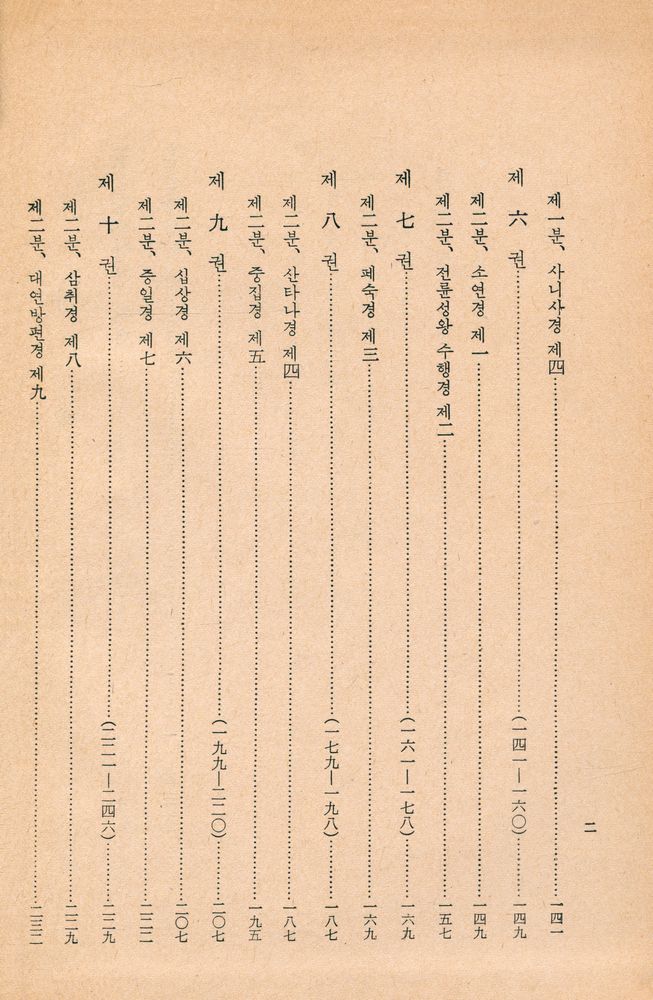 二
제一분、사니사경 제四……一四一
제 六 권……(一四一—一六〇)……一四九
제二분、소연경 제一……一四九
제二분、전륜성왕 수행경 제二……一五七
제 七 권……(一六一—一七八)……一六九
제二분、폐숙경 제三……一六九
제 八 권……(一七九—一九八)……一八七
제二분、산타나경 제四……一八七
제二분、중집경 제五……一九五
제 九 권……(一九九—二二〇)……二〇七
제二분、십상경 제六……二〇七
제二분、증일경 제七……二二二
제 十 권……(二二一—二四六)……二二九
제二분、삼취경 제八……二二九
제二분、대연방편경 제九……二三二